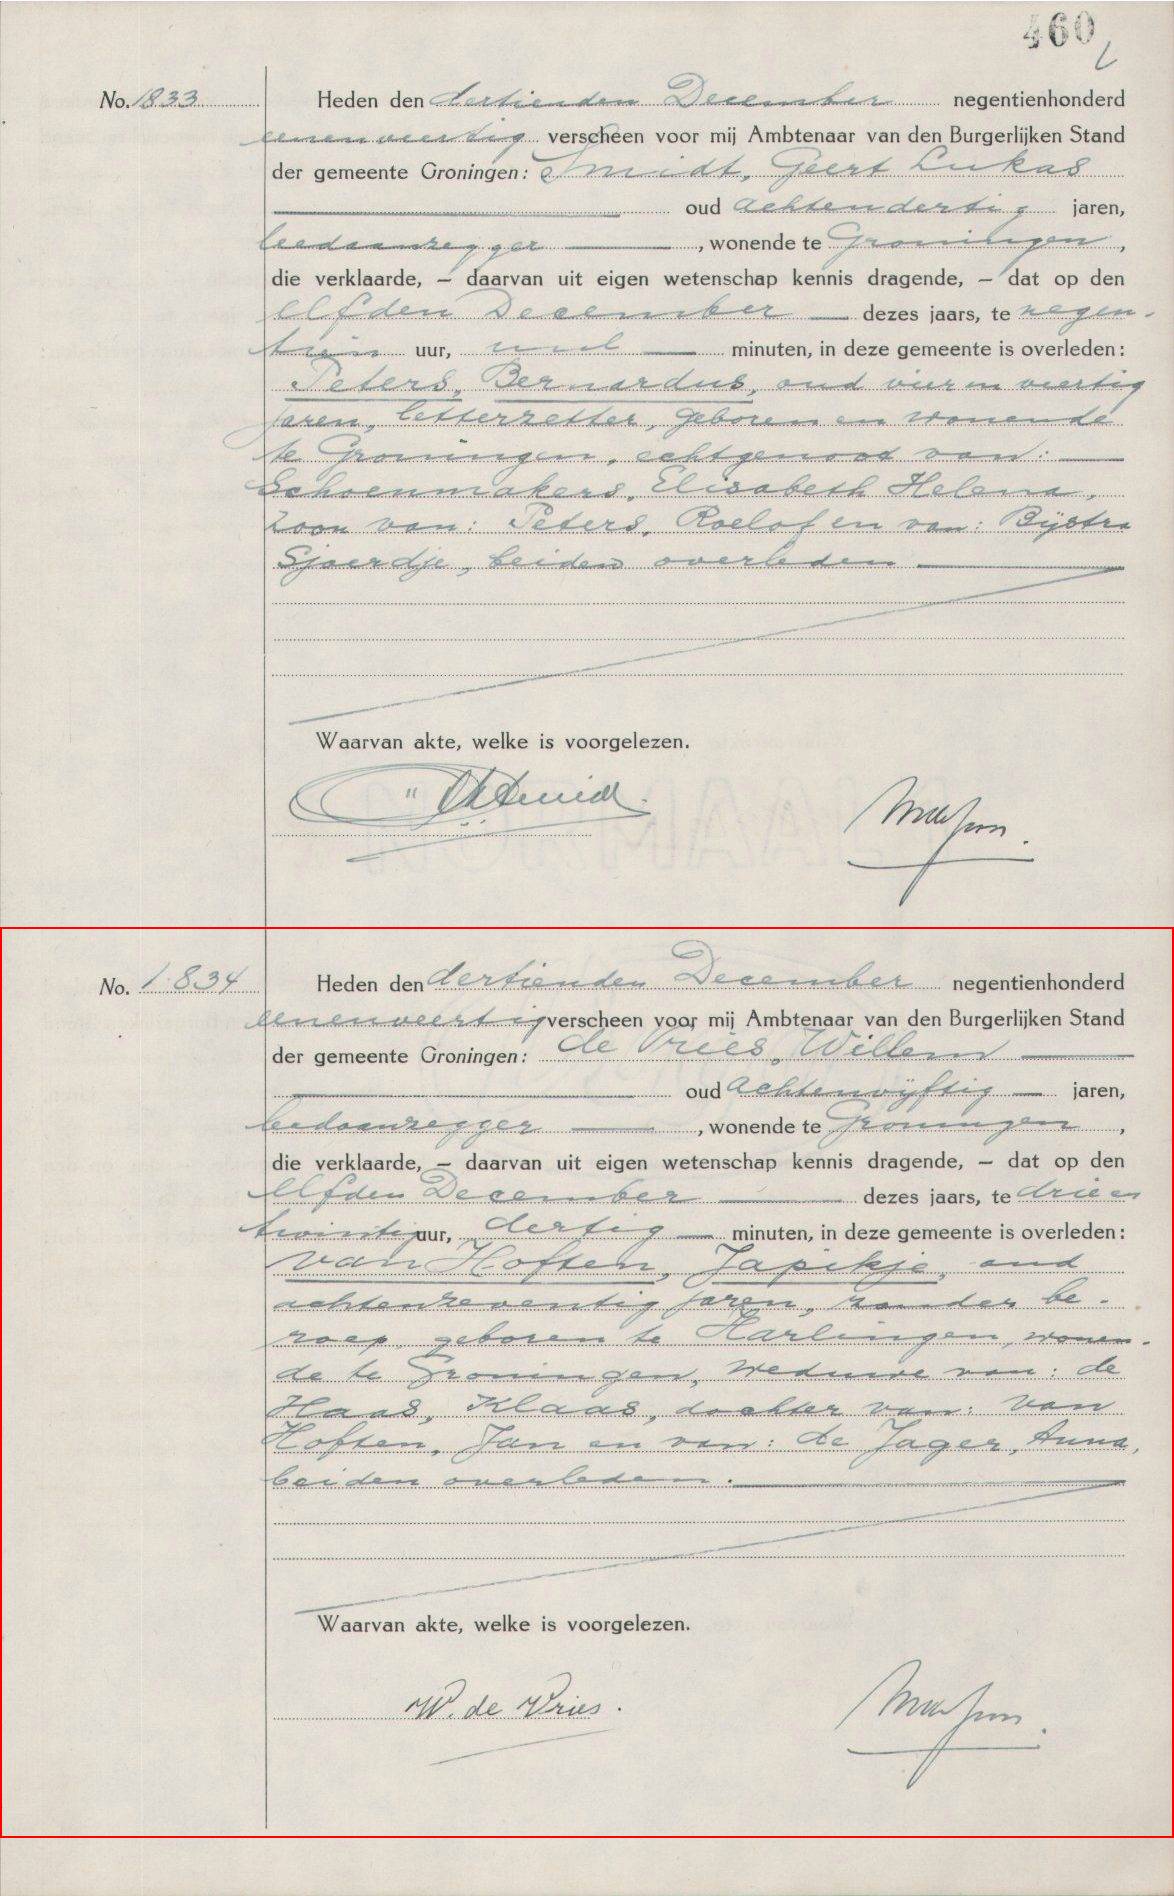 460
No. 1833 Heden den dertienden December negentienhonderd
eenenveertig verscheen voor mij Ambtenaar van den Burgerlijken Stand
der gemeente Groningen: Smidt, Geert Lukas
oud achtendertig jaren,
leedaanzegger, wonende te Groningen,
die verklaarde, – daarvan uit eigen wetenschap kennis dragende, – dat op den
elfden December dezes jaars, te negen-
tien uur, nul minuten, in deze gemeente is overleden:
Peters, Bernardus, oud vierenveertig
jaren, letterzetter, geboren en wonende
te Groningen, echtgenoot van:
Schoenmakers, Elisabeth Helena,
zoon van: Peters, Roelof en van: Bijstra
Sjoerdje, beiden overleden
Waarvan akte, welke is voorgelezen.
No. 1834 Heden den dertienden December negentienhonderd
eenenveertig verscheen voor mij Ambtenaar van den Burgerlijken Stand
der gemeente Groningen: de Vries, Willem
oud achtenvijftig jaren,
leedaanzegger, wonende te Groningen,
die verklaarde, – daarvan uit eigen wetenschap kennis dragende, – dat op den
elfden December dezes jaars, te drieen
twintig uur, dertig minuten, in deze gemeente is overleden:
van Hoften, Japikje, oud
achtenzeventig jaren, zonder be-
roep, geboren te Harlingen, wonen-
de te Groningen, weduwe van: de
Haas, Klaas, dochter van: van
Hoften, Jan en van: de Jager, Anna,
beiden overleden.
Waarvan akte, welke is voorgelezen.
W. de Vries.